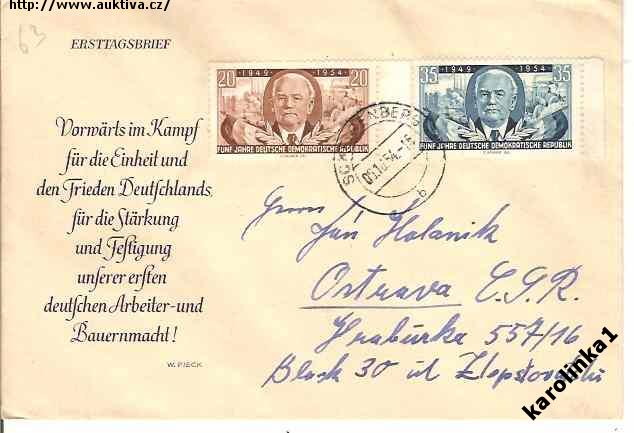 http://www.auktiva.cz/
63
ERSTTAGSBRIEF
20 1949 1954 20
FÜNF JAHRE DEUTSCHE DEMOKRATISCHE REPUBLIK
35 1949 1954 35
FÜNF JAHRE DEUTSCHE DEMOKRATISCHE REPUBLIK
Vorwärts im Kampf
für die Einheit und
den Frieden Deutschlands,
für die Stärkung
und Festigung
unserer ersten
deutschen Arbeiter-und
Bauernmacht!
W. PIECK
b
Herrn
Ján Holanik
Ostrava Č.S.R.
Hrabůrka 557/16
Block 30 ul
karolinka1